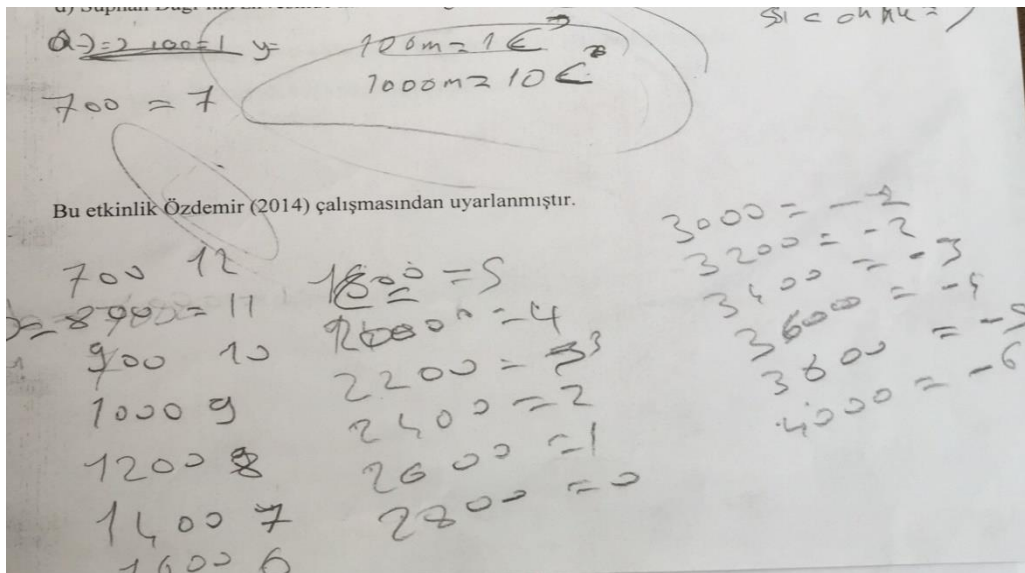 100=1 y=
100m=1€
1000m=10€
700 = 7
Bu etkinlik Özdemir (2014) çalışmasından uyarlanmıştır.
700 12
= 11
900 10
1000 9
1200 8
1400 7
1600 6
1800 = 5
2000 = 4
2200 = 3
2400 = 2
2600 = 1
2800 = 0
3000 = -2
3200 = -2
3400 = -3
3600 = -4
3800 = -5
4000 = -6